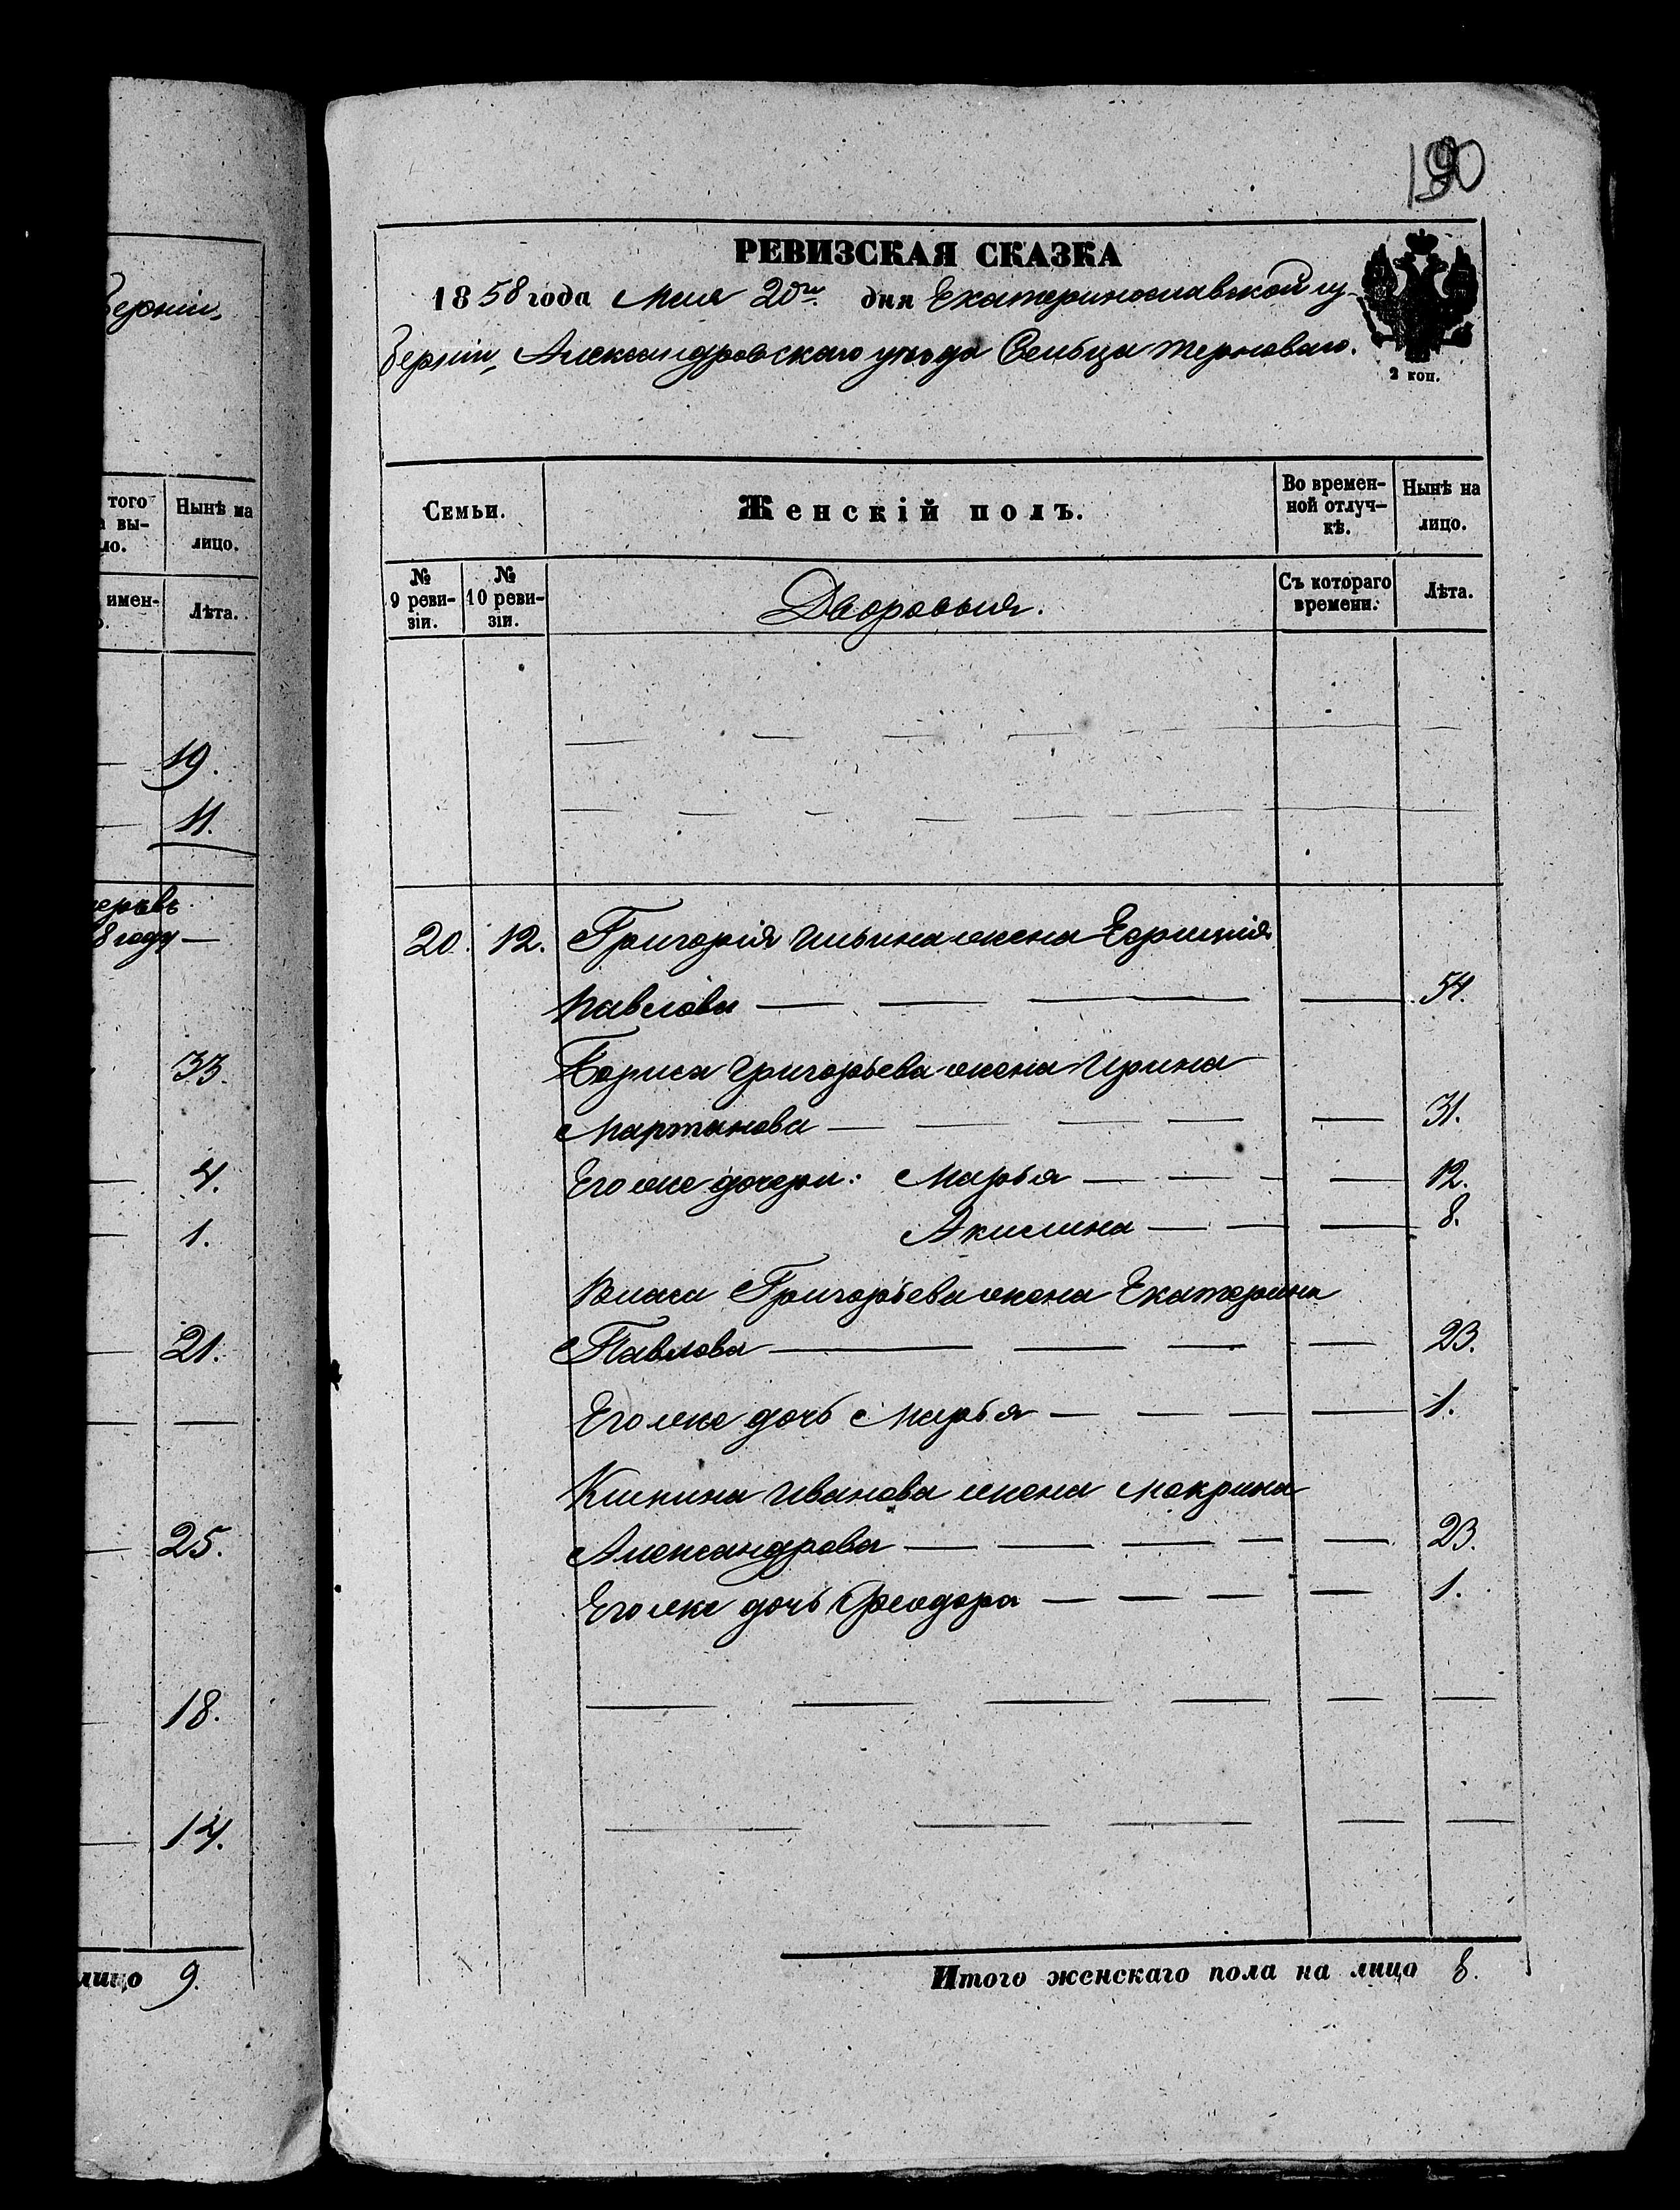 берніи,
того
вы-
ло.
Нынѣ на
лицо.
имен-
Лѣта.
19.
11.
церквѣ
8 году —
33.
4.
1.
21.
25.
18.
14.
лицо 9.
190
РЕВИЗСКАЯ СКАЗКА
1858 года Мая 20го дня Екатеринославской гу-
берніи, Александровскаго уѣзда Сельца Терноваго.
2 коп.
Семьи.
Женскій полъ.
Во времен-
ной отлуч-
кѣ.
Нынѣ на
лицо.
№
9 реви-
зіи.
№
10 реви-
зіи.
Дворовыя.
Съ котораго
времени.
Лѣта.
20. 12. Григорія Ильина жена
Павлова — — — — 54.
Бориса Григорьева жена Ирина
Мартинова — — — — — 31.
Его же дочери: Марья — — — — 12.
Акилина — — — 8.
Власа Григорьева жена Екатерина
Павлова — — — — 23.
Его же дочь Марья — — — — 1.
Кипина Иванова жена Мокрина
Александрова — — — — — 23.
Его же дочь Феодора — — — — — 1.
Итого женскаго пола на лицо 8.